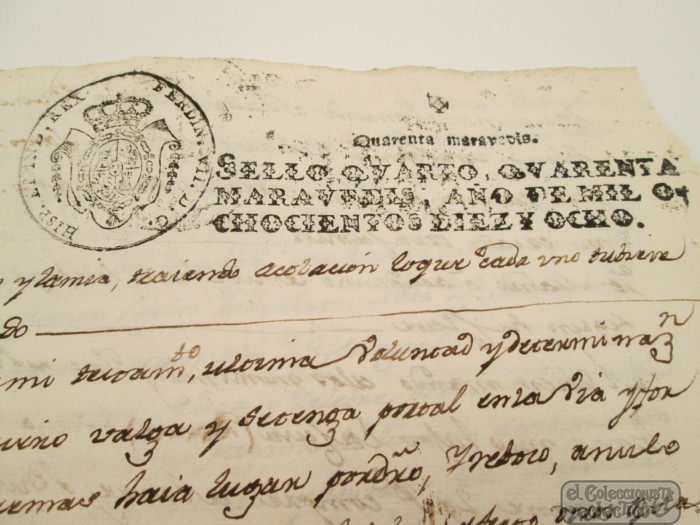 HISP. ET IND. REX. FERDIN. VII. D. G.
Quarenta maravedis.
SELLO QVARTO, QVARENTA
MARAVEDIS, AÑO DE MIL O-
CHOCIENTOS DIEZ Y OCHO.
y lamia, traiendo acolacion loque cada uno tubiere
do
mi testamto, ultima Voluntad y determinazn
valga y setenga portal enla Via y for
haia lugar pordro, Yreboco, anulo
el Coleccionista